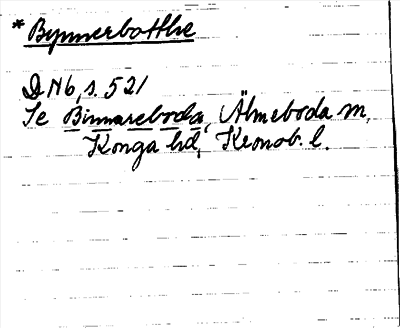 * Bynnerbotthe
DN6, s. 521
Se Binnareboda, Älmeboda sn,
Konga hd, Kronob. l.